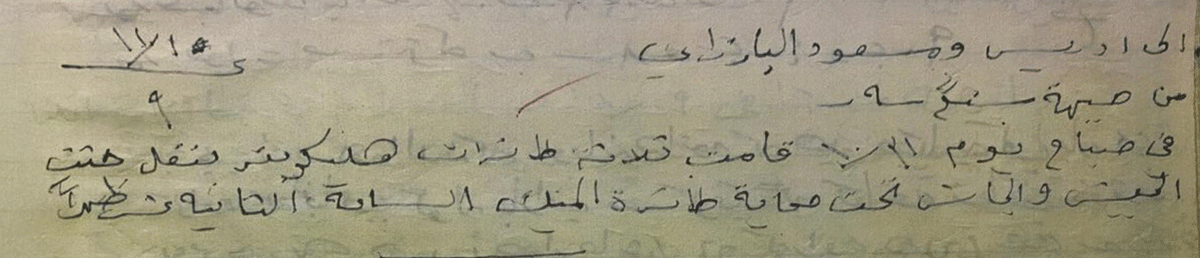 الى ادريس ومسعود البارزاني
من جبهة سنگه سر
٩
في صباح يوم ١٠/٣١ قامت ثلاثة طائرات هليكوبتر بنقل جثث
الجيش والجاش تحت حماية طائرة الميك الساعة الثانية ظهراً